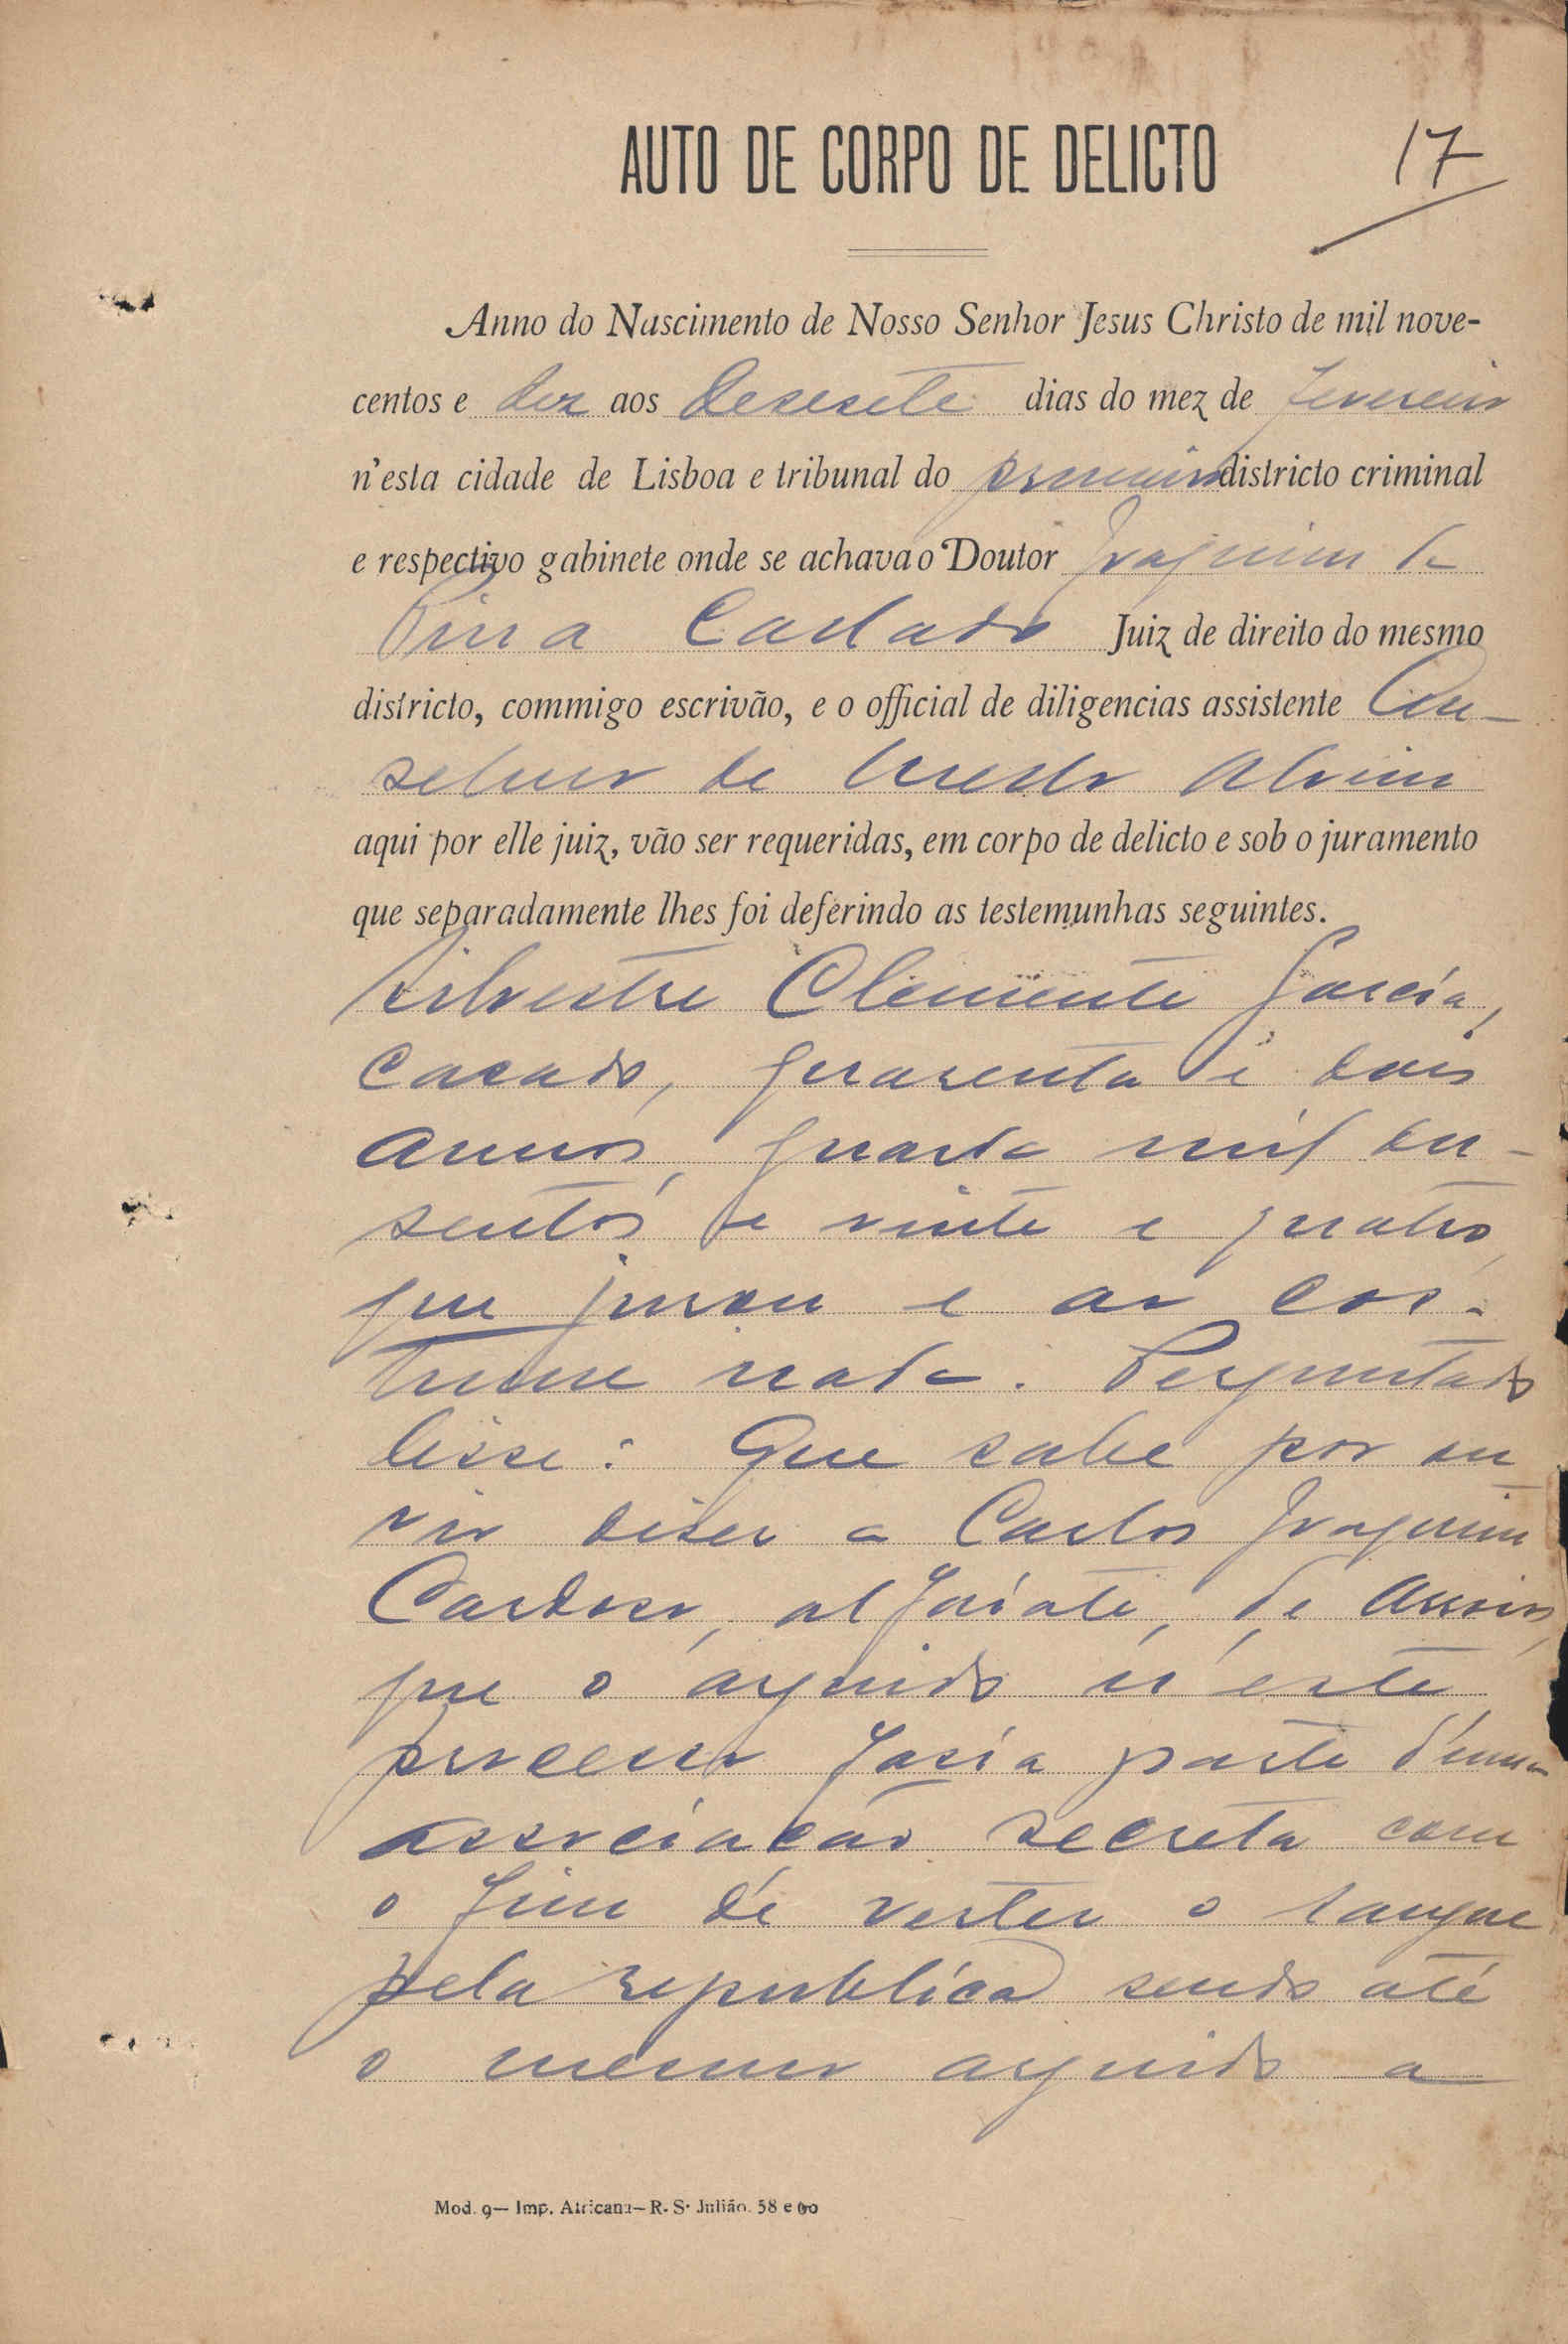 AUTO DE CORPO DE DELICTO
17
Anno do Nascimento de Nosso Senhor Jesus Christo de mil nove-
centos e dez aos desesete dias do mez de Fevereiro
n'esta cidade de Lisboa e tribunal do primeiro districto criminal
e respectivo gabinete onde se achava o Doutor Joaquim de
Pina Callado Juiz de direito do mesmo
districto, commigo escrivão, e o official de diligencias assistente An-
selmo de Alvim
aqui por elle juiz, vão ser requeridas, em corpo de delicto e sob o juramento
que separadamente lhes foi deferindo as testemunhas seguintes.
Silvestre Clemente Garcia,
casado, quarenta e dois
annos, guarda mil du-
sentos e vinte e quatro,
que jurou e ao cos-
tume nada. Perguntado
disse: Que sabe por ou-
vir diser a Carlos Joaquim
Cardoso, alfaiate, de
que o arguido n'este
processo fasia parte d'uma
associacão secreta com
o fim de verter o sangue
pela republica sendo até
o mesmo arguido a
Mod. 9— Imp. Africana—R. S. Julião. 58 e 60